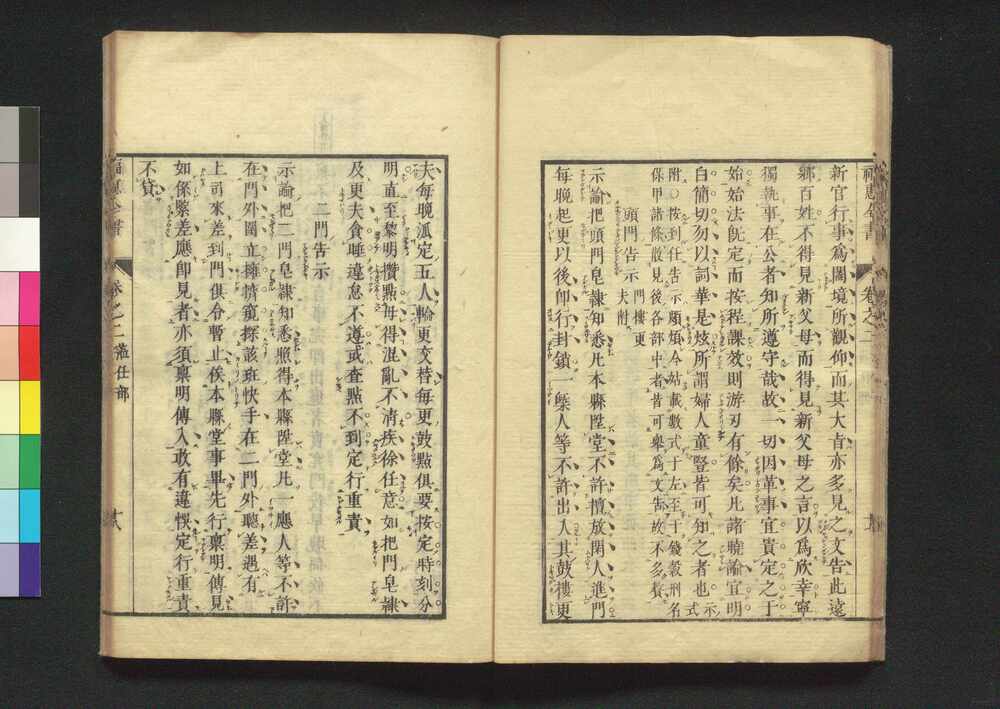 福惠全書 卷之二
新官行事爲闔境所觀仰而其大吉亦多見之文告此遠
鄉百姓不得見新父母而得見新父母之言以爲欣幸寧
獨執事在公者知所遵守哉故一切因革事宜貴定之于
始始法旣定而按程課效則游刃有餘矣凡諸曉諭宜明
白簡切勿以詞華是炫所謂婦人童豎皆可知之者也 示式
附○按到任告示頗煩今姑載數式于左至于錢穀刑名
保甲諸條散見後各部中者皆可舉爲文告故不多贅
頭門告示 門樓更夫附
示諭把頭門皂隸知悉凡本縣陞堂不許擅放閑人進門
每晚起更以後卽行封鎖一槩人等不許出入其鼓樓更
夫每晚派定五人輪更交替每更鼓點俱要按定時刻分
明直至黎明攢點毋得混亂不清疾徐任意如把門皂隸
及更夫貪睡違怠不遵或查點不到定行重責
二門告示
示諭把二門皂隸知悉照得本縣陞堂凡一應人等不許
在門外圍立擁擠窺探該班快手在二門外聽差遇有
上司來差到門俱令暫止俟本縣堂事畢先行稟明傳見
如係緊差應卽見者亦須稟明傳入敢有違悞定行重責
不貸
福惠全書 卷之二 蒞任部 十八